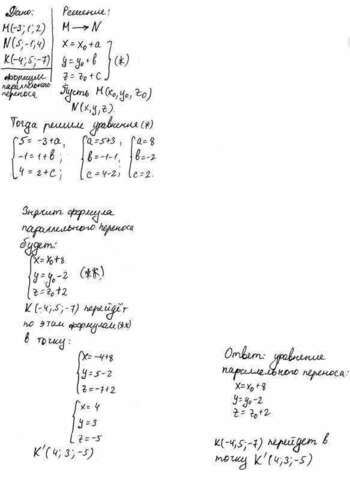 Дано:
M(-3; 1; 2)
N(5; -1; 4)
K(-4; 5; -7)
формулы
параллельного
переноса
Решение:
M → N
x = x₀ + a
y = y₀ + b (*)
z = z₀ + c
Пусть M(x₀, y₀, z₀)
N(x, y, z).
Тогда решим уравнения (*)
5 = -3+a, a = 5+3, a = 8
-1 = 1+b; b = -1-1, b = -2
4 = 2+c; c = 4-2; c = 2.
Значит формула
параллельного переноса
будет:
x = x₀+8
y = y₀-2 (**)
z = z₀+2
K(-4; 5; -7) перейдёт
по этим формулам (**)
в точку:
x = -4+8
y = 5-2
z = -7+2
x = 4
y = 3
z = -5
K'(4; 3; -5)
Ответ: уравнение
параллельного переноса:
x = x₀+8
y = y₀-2
z = z₀+2
K(-4; 5; -7) перейдет в
точку K'(4; 3; -5)